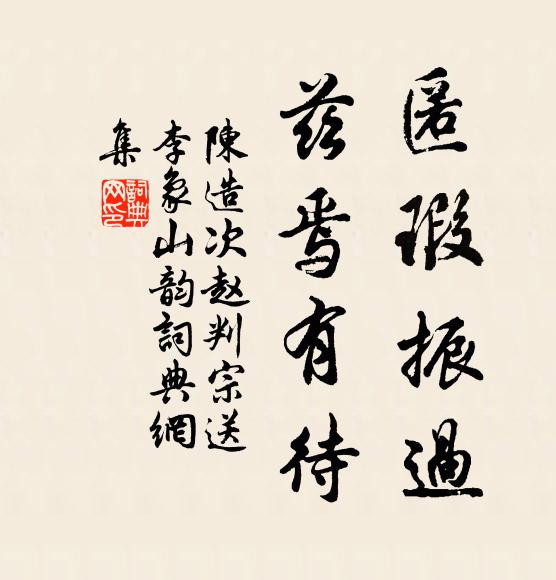 匿瑕振過
茲焉有待
陳造次赵判宗送
李象山韵詞典網
集
詞典
网印